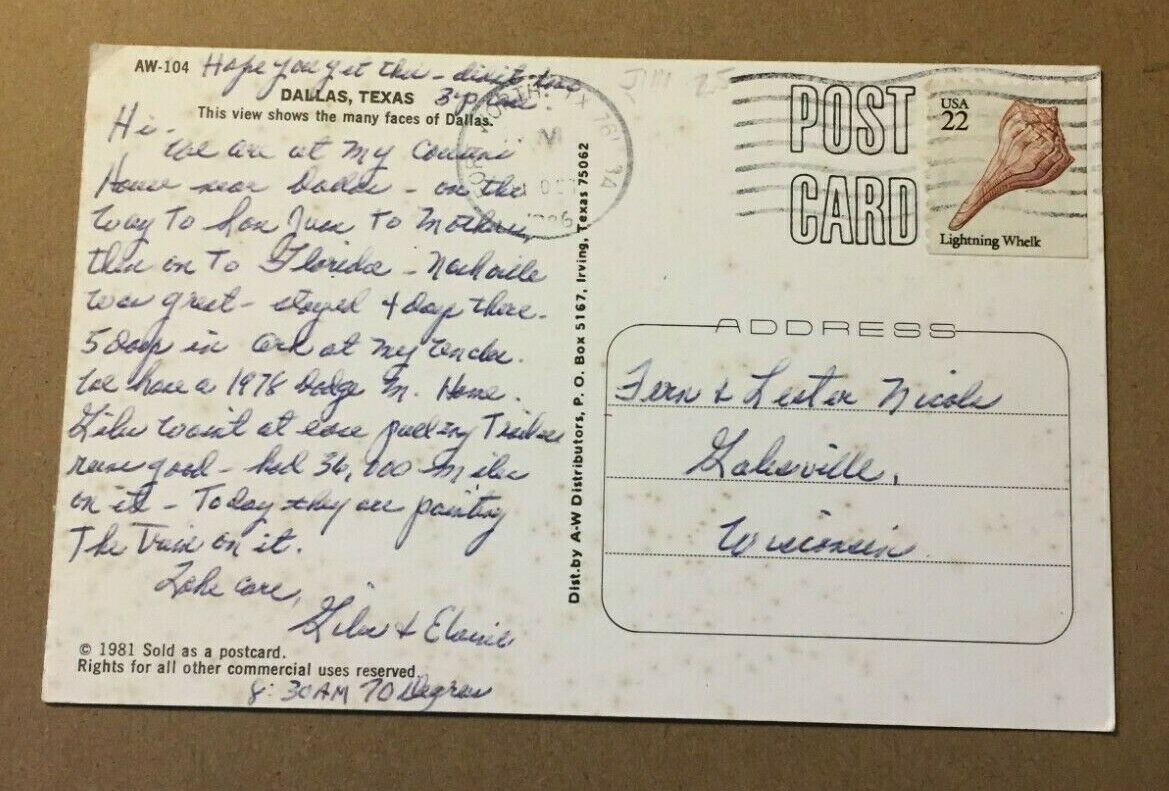 AW-104 Hope you get this -
DALLAS, TEXAS
This view shows the many faces of Dallas.
Hi.
We are at my Cousins
House near Dallas - on the
way to San Juan to Mothers,
then on to Florida - Nashville
was great - stayed 4 days there.
5 days in Ark at my Uncles.
We have a 1978 Dodge M. Home.
at pulling Trailer
runs good - had 36,000 miles
on it - Today they are painting
The Train on it.
Take care,
& Elaine
© 1981 Sold as a postcard.
Rights for all other commercial uses reserved.
8:30 AM 70 Degrees
Dist. by A-W Distributors, P. O. Box 5167, Irving, Texas 75062
FORT WORTH, TX 761
OCT
1986
POST
CARD
USA
22
Lightning Whelk
ADDRESS
Fern & Lester Nicols
Galesville,
Wisconsin